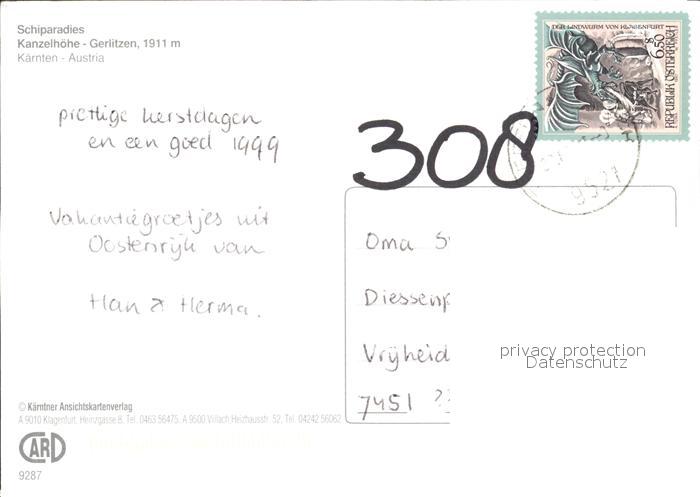 Schiparadies
Kanzelhöhe - Gerlitzen, 1911 m
Kärnten - Austria
DER LINDWURM VON KLAGENFURT
S 6,50
REPUBLIK ÖSTERREICH
308
9521
prettige kerstdagen
en een goed 1999
Vakantiegroetjes uit
Oostenrijk van
Han & Herma.
Oma S
Diessenp
Vrijheid
7451
privacy protection
Datenschutz
© Kärntner Ansichtskartenverlag
A 9010 Klagenfurt, Heinzgasse 8, Tel. 0463 56475, A 9500 Villach Heizhausstr. 52, Tel. 04242 56062
CARD
9287